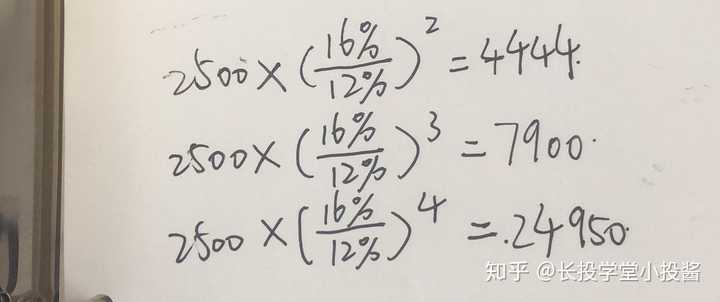 2500 × (16%/12%)² = 4444.
2500 × (16%/12%)³ = 7900.
2500 × (16%/12%)⁴ = .24950.
知乎 @长投学堂小投酱